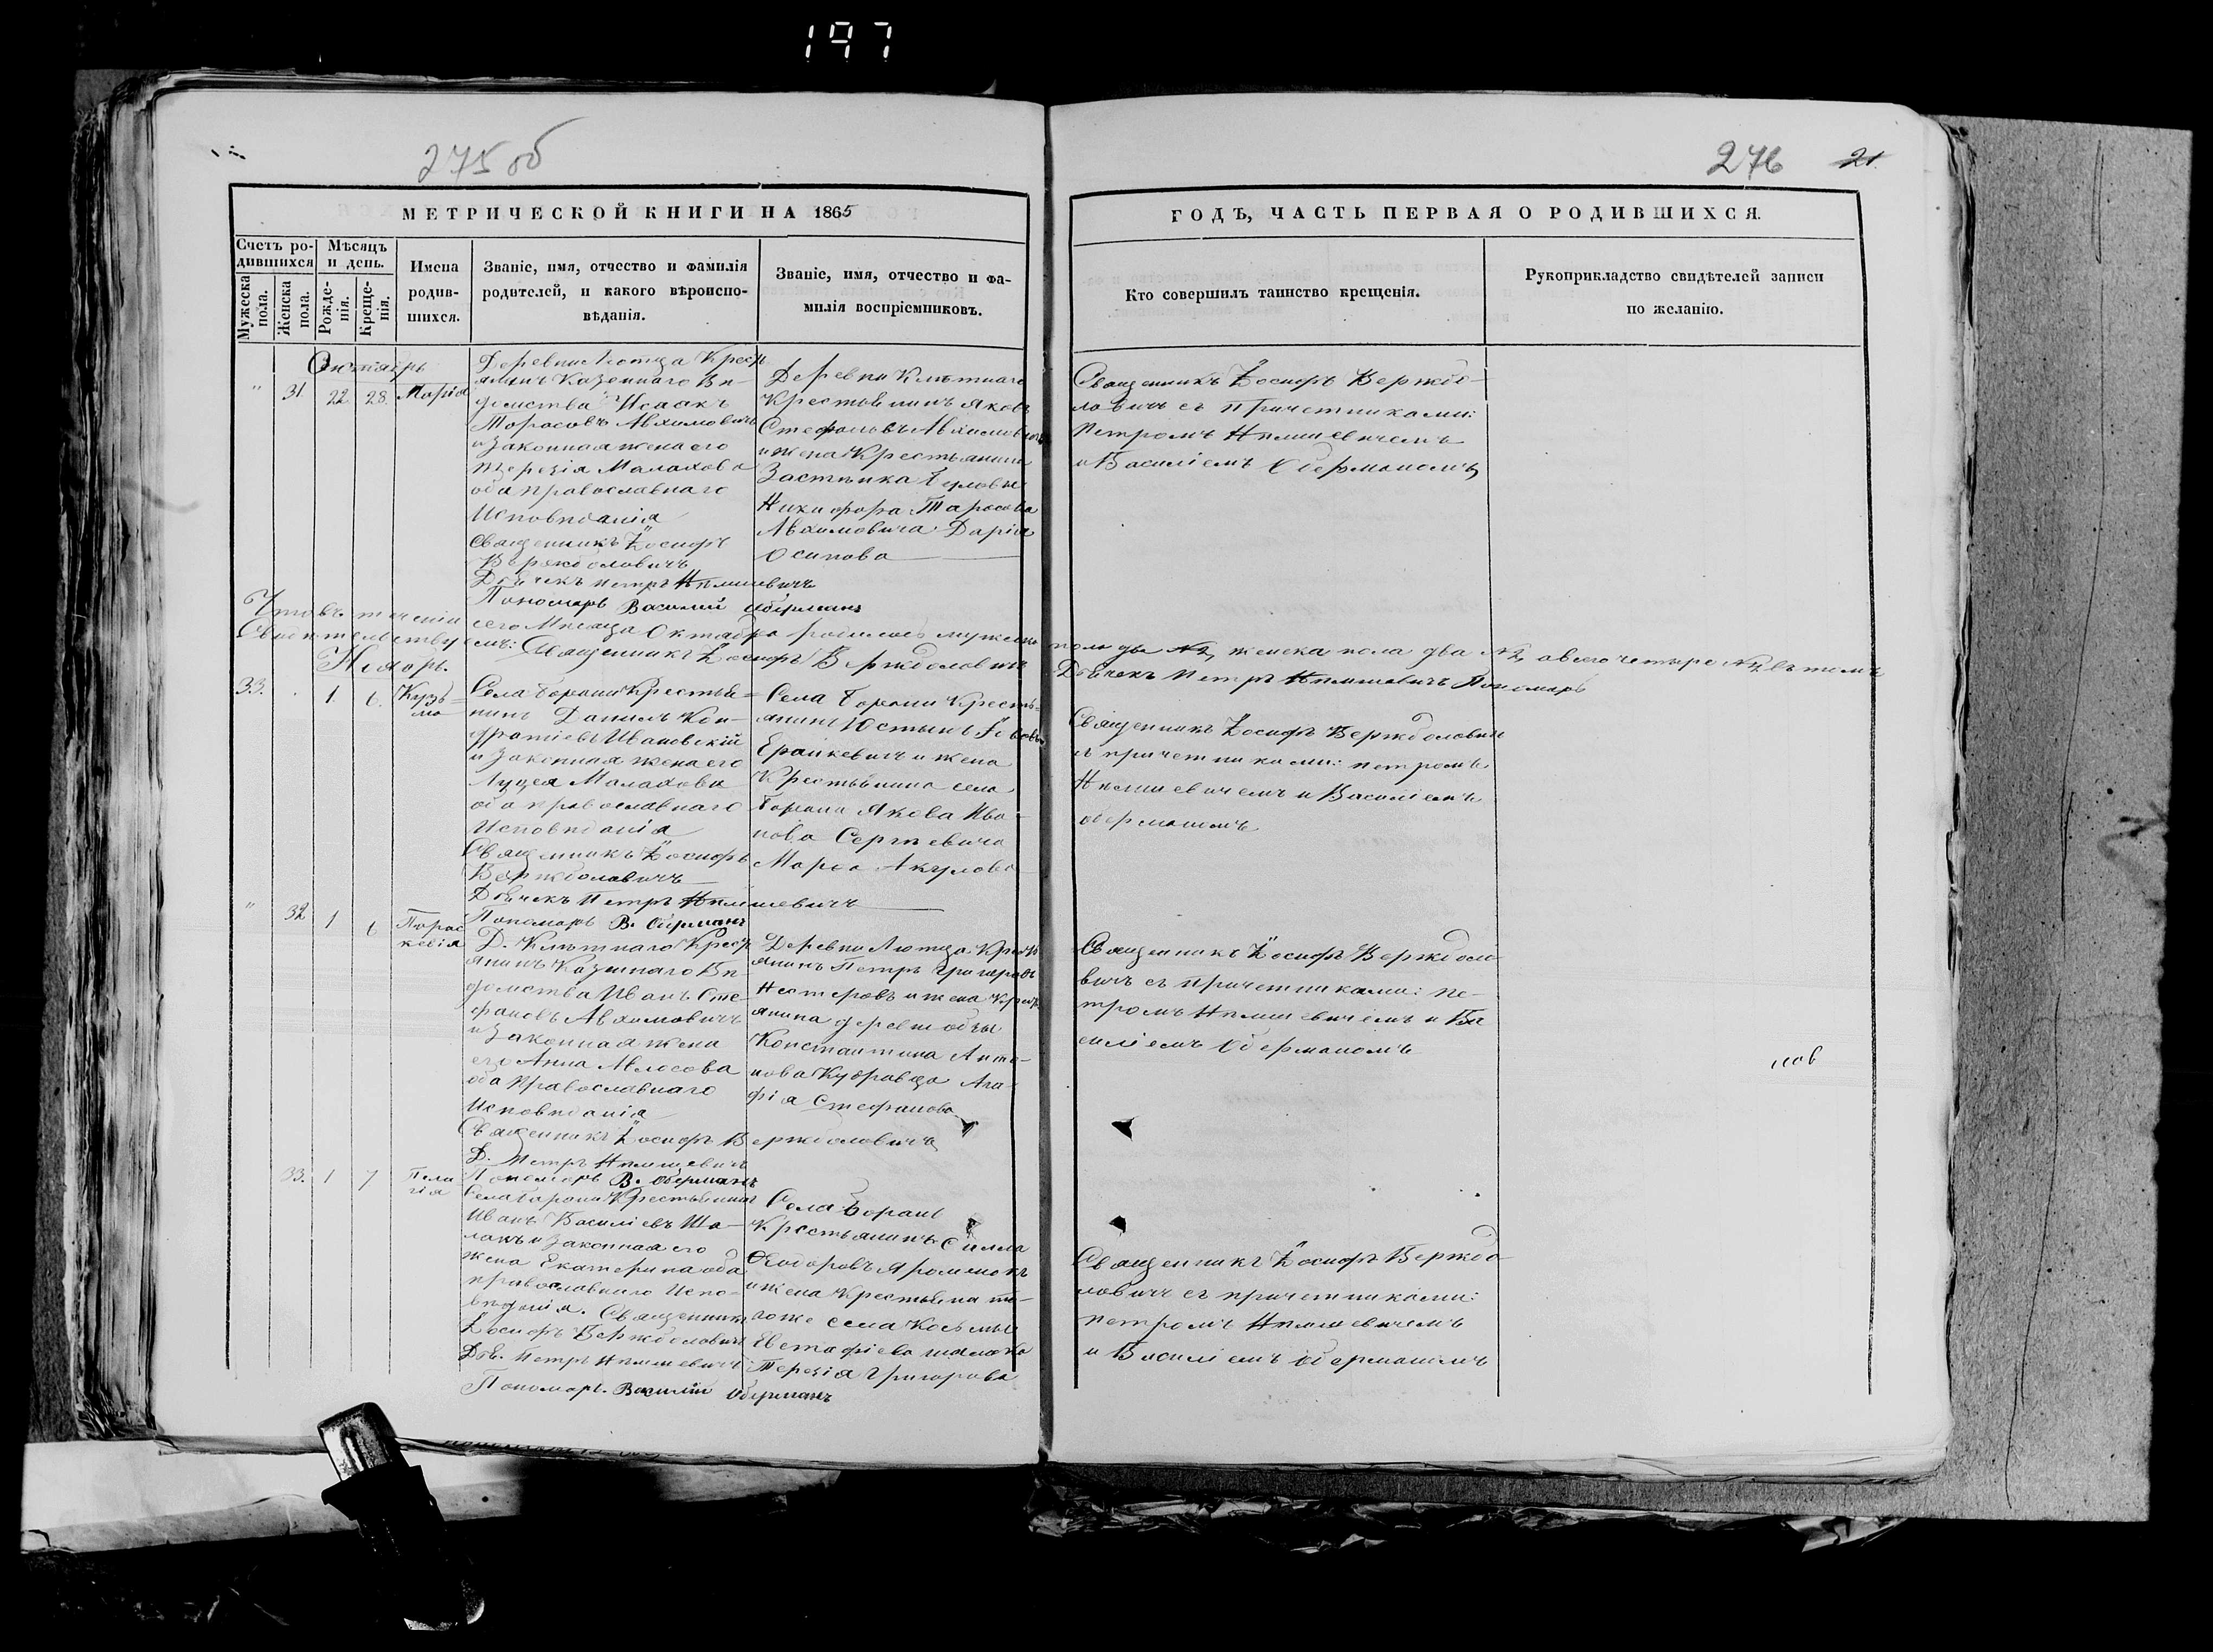 197
275 об
276 21
МЕТРИЧЕСКОЙ КНИГИ НА 1865
ГОДЪ, ЧАСТЬ ПЕРВАЯ О РОДИВШИХСЯ.
Счетъ ро-
дившихся
Мужеска
пола.
Женска
пола.
Мѣсяцъ
и день.
Рожде-
нія.
Креще-
нія.
Имена
родив-
шихся.
Званіе, имя, отчество и фамилія
родителей, и какого вѣроиспо-
вѣданія.
Званіе, имя, отчество и фа-
милія воспріемниковъ.
Кто совершилъ таинство крещенія.
Рукоприкладство свидѣтелей записи
по желанію.
Октябрь
" 31. 22. 28. Марія
Деревни Лютца Крест
янинъ Казеннаго Вѣ-
домства Исаакъ
Тарасовъ Авхимовичъ
и Законная жена его
Терезія Малахова
оба православнаго
Исповѣданія
Священникъ Іосифъ
Вержболовичъ
Дьячекъ Петръ
Пономарь Василий Оберманъ
Деревни Клѣтнаго
Крестьянинъ Яковъ
Стефановъ Авхимовичъ
и жена Крестьянина
Застѣнка
Никифора Тарасова
Авхимовича Дарія
Осипова
Священникъ Іосифъ Вержбо-
ловичъ съ Причетниками:
Петромъ
и Василіемъ Оберманомъ
Что въ теченіи сего Мѣсяца Октября родилось мужеска пола два №2, женска пола два №2, а всего четыре №4, въ томъ
Свидѣтельствуемъ: Священникъ Іосифъ Вержболовичъ Дьячекъ Петръ Пономарь
Ноябрь.
33. 1. 6. Кузь-
ма
Села Борани Крестья-
нинъ Даниилъ Кон-
дратіевъ Ивановскій
и Законная жена его
Луцея Малахова
оба православнаго
Исповѣданія
Священникъ Іосифъ
Вержболовичъ
Дьячекъ Петръ
Пономарь В. Оберманъ
Села Борани Кресть-
янинъ Юстынъ
и жена
Крестьянина села
Борани Якова Ива-
нова Сергѣевича
Марѳа Акулова
Священникъ Іосифъ Вержболович
съ причетниками: петромъ
и Василіемъ
оберманомъ
" 32 1 6 Парас
кевія
Д. Клѣтнаго Крест
янинъ Казеннаго Вѣ-
домства Иванъ Сте-
фановъ Авхимовичъ
и Законная жена
его Анна
оба Православнаго
Исповѣданія
Священникъ Іосифъ Вержболовичъ
Д. Петръ
Пономарь В. Оберманъ
Деревни Лютца Крест
янинъ Петръ Григоровъ
Нестеровъ и жена Крест
янина деревни
Константина Анто-
нова Кудравца Ага-
фія Стефанова
Священникъ Іосифъ Вержболо-
вичъ съ причетниками: Пе-
тромъ и Ва
силіемъ Оберманомъ
33. 1 7 Пела
гія
Села Борани Крестьянинъ
Иванъ Василіевъ Ша-
лакъ и Законная его
жена Екатерина оба
православнаго Испо-
вѣданія. Священникъ
Іосифъ Вержболовичъ
Дьяч. Петръ
Пономарь Василій Оберманъ
Села Борани
Крестьянинъ
Ѳеодоровъ
и жена Крестьянина то-
гоже села Косьмы
Евстафіева
Терезія Григорова
Священникъ Іосифъ Вержбо
ловичъ съ причетниками:
петромъ
и Василіемъ Оберманомъ